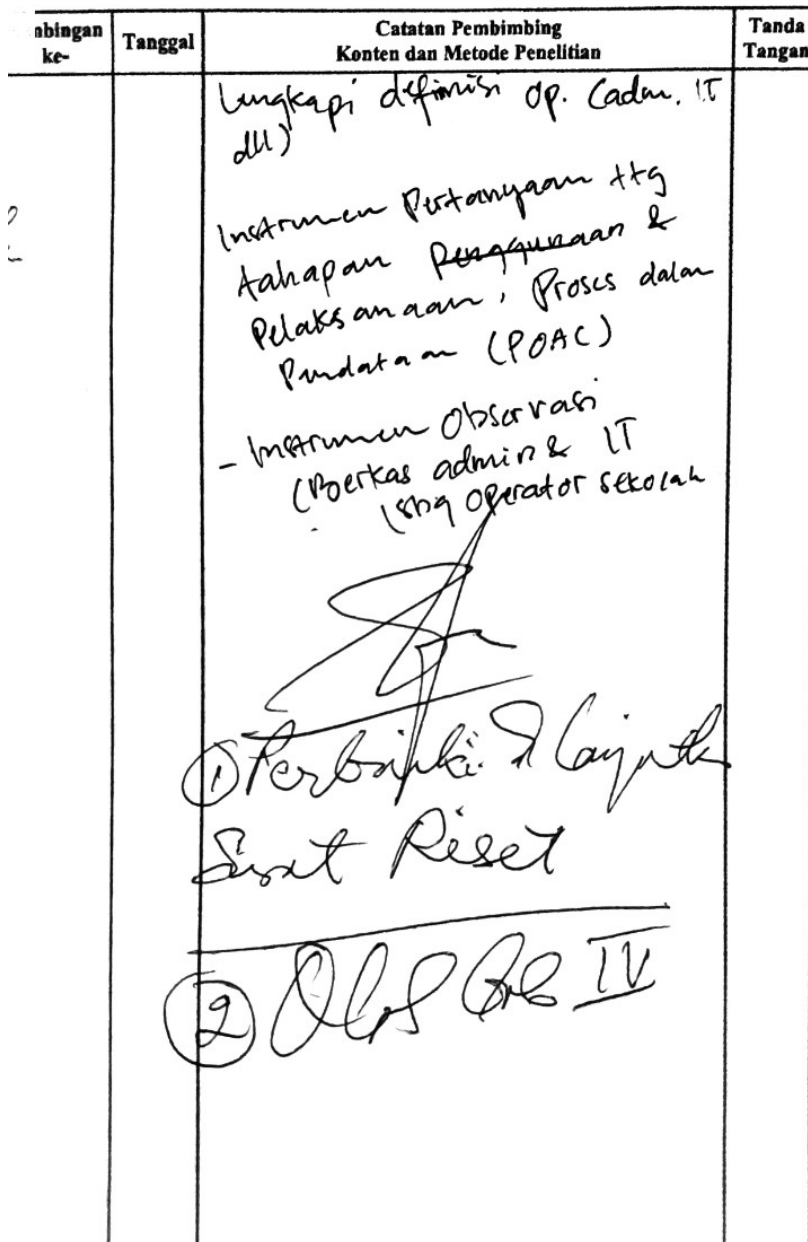 mbingan
ke-
Tanggal
Catatan Pembimbing
Konten dan Metode Penelitian
Tanda
Tangan
Lengkapi definisi Op. (adm. IT
dll)
Instrumen Pertanyaan ttg
tahapan Penggunaan &
Pelaksanaan, Proses dalam
Pendataan (POAC)
- Instrumen Observasi
(Berkas admin & IT
sbg operator sekolah
① Perbaiki & lanjutk
Surat Riset
② IV